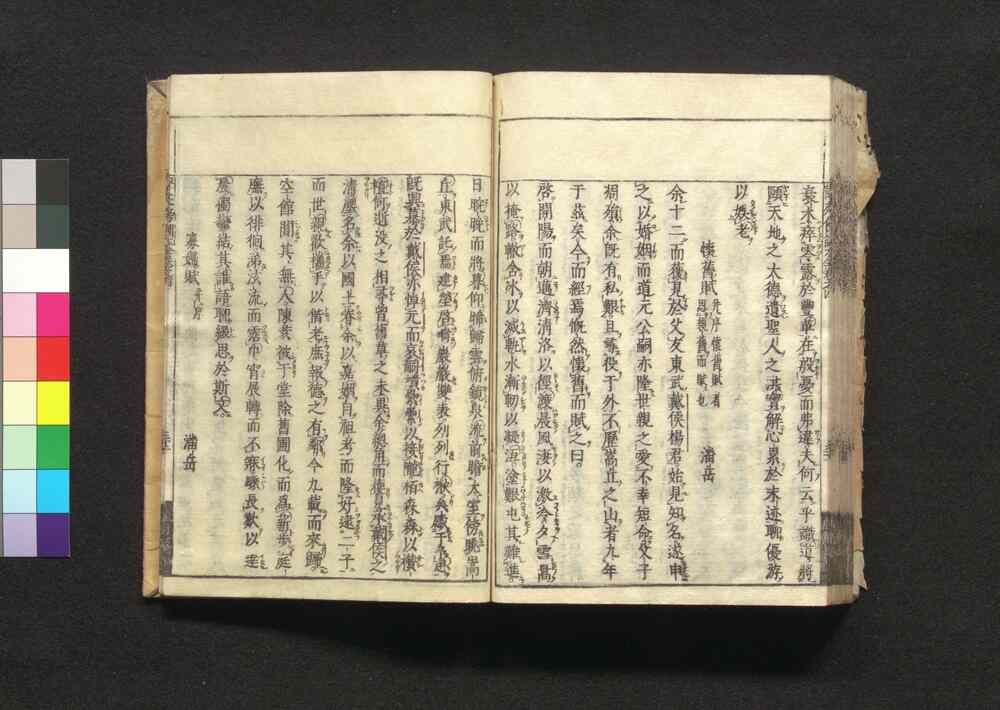 衰木瘁零露於豐草在殷憂而弗違夫何云乎識道將
頤天地之大德遺聖人之洪寶解心累於末迹聊優游
以娛老
懷舊賦
潘岳
余十二而獲見於父友東武戴侯楊君始見知名遂申
之以婚姻而道元公嗣亦隆世親之愛不幸短命父子
凋殞余既有私艱且尋役于外不歷嵩丘之山者九年
于茲矣今而經焉慨然懷舊而賦之曰
啓開陽而朝邁濟清洛以徑渡晨風淒以激冷夕雪暠
以掩路轍含冰以滅軌水漸軔以凝沍塗艱屯其難進
日晼晚而將暮仰睎歸雲俯鏡泉流前瞻太室傍眺嵩
丘東武託焉建塋啓疇巖巖雙表列列行楸
既興慕於戴侯亦悼元而哀嗣墳壘壘以接壟栢森森以攢
植何逝没之相尋曾舊草之未異余總角而獲見承戴侯之
清塵名余以國士眷余以嘉姻自祖考而隆好逮二子
而世親歡攜手以偕老庶報德之有鄰今九載而來
空館闃其無人陳荄被于堂除舊圃化而爲薪步庭
廡以徘徊涕泫流而霑巾宵展轉而不寐驟長歎以達
晨獨鬱結其誰語聊綴思於斯文
寡婦賦
潘岳